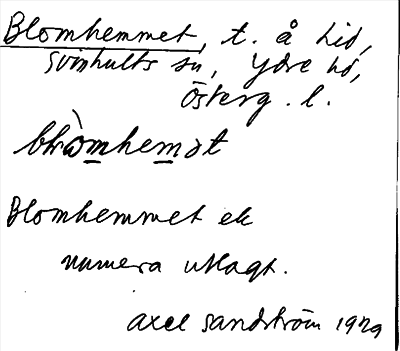 Blomhemmet, t. å Lid,
Svinhults sn, Ydre hd,
Österg. l.
Blomhemmet ek
numera utlagt.
Axel Sandström 1929